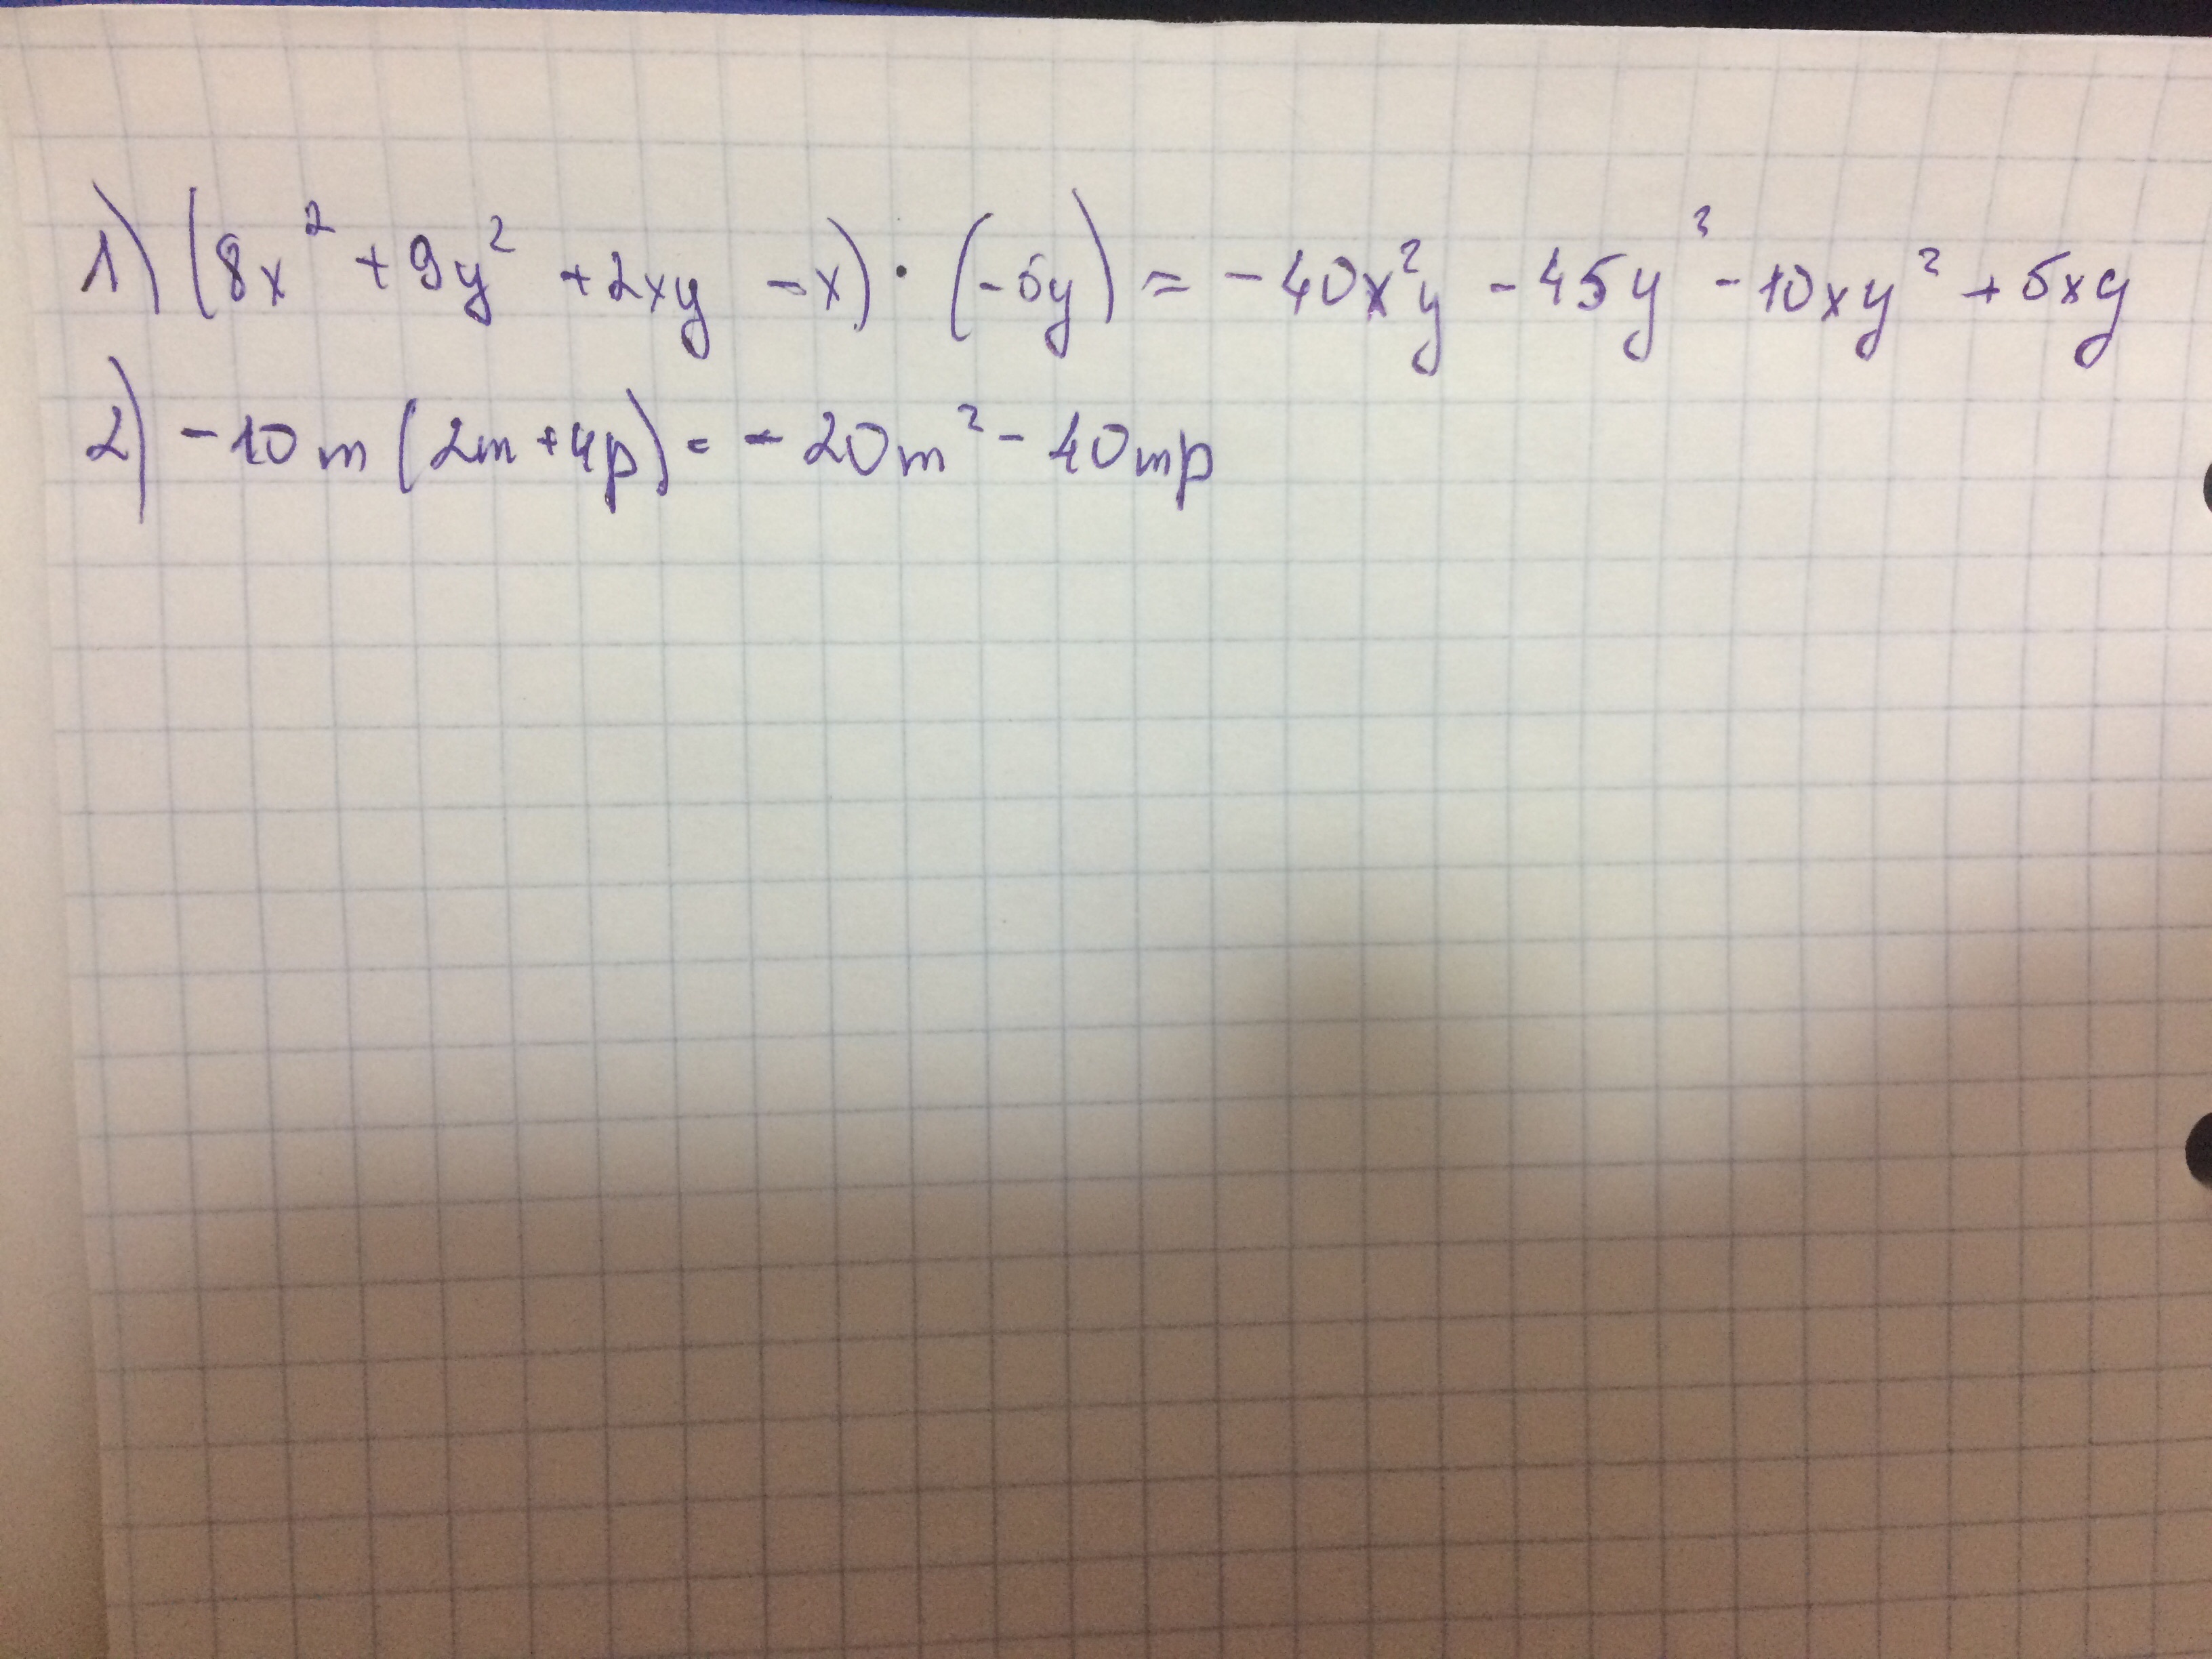 1) (8x² + 9y² + 2xy - x) · (-5y) = -40x²y - 45y³ - 10xy² + 5xy
2) -10m (2m + 4p) = -20m² - 40mp